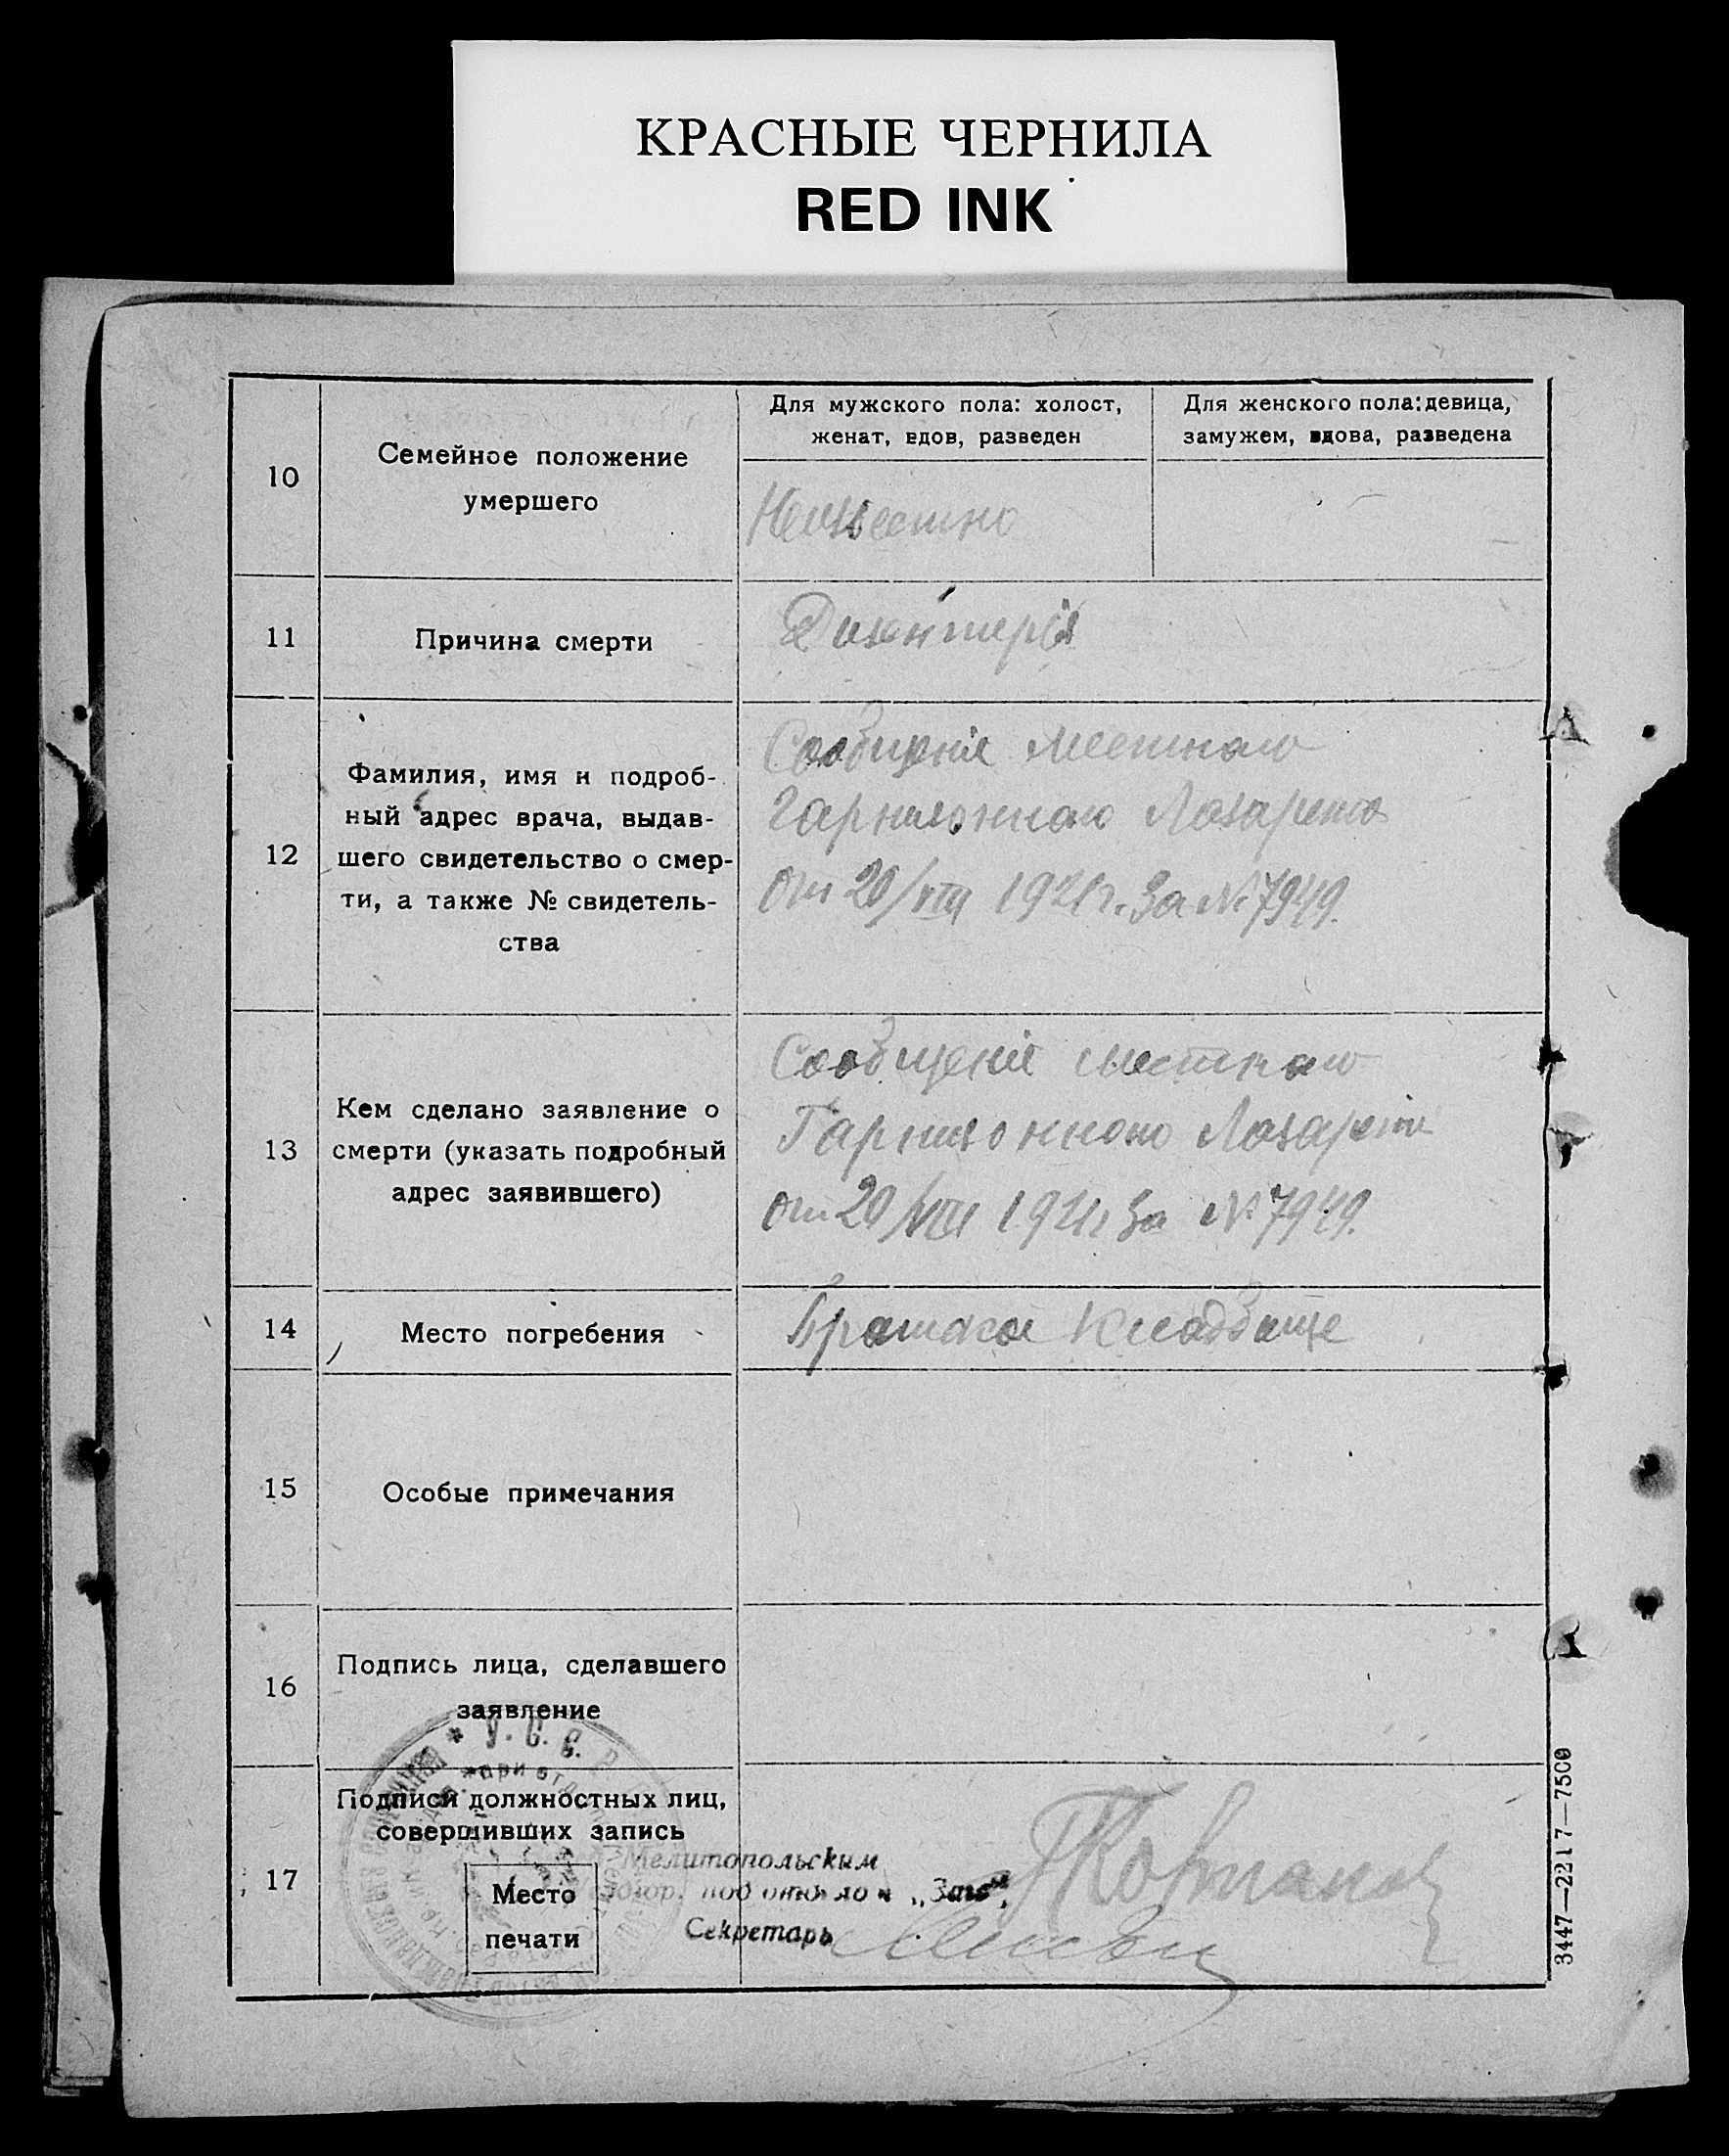 КРАСНЫЕ ЧЕРНИЛА
RED INK
10
Семейное положение
умершего
Для мужского пола: холост,
женат, вдов, разведен
Для женского пола: девица,
замужем, вдова, разведена
Неизвестно
11
Причина смерти
Дизентерія
12
Фамилия, имя и подроб-
ный адрес врача, выдав-
шего свидетельство о смер-
ти, а также № свидетель-
ства
Сообщеніе местнаго
Гарнизоннаго Лазарета
от 20/VIII 1921г. За № 7949.
13
Кем сделано заявление о
смерти (указать подробный
адрес заявившего)
Сообщеніе местнаго
Гарнизонного Лазарета
от 20/VIII 1921г За № 7949.
14
Место погребения
Братское Кладбище
15
Особые примечания
16
Подпись лица, сделавшего
заявление
17
Подписи должностных лиц,
совершивших запись
Место
печати
* У. С. С. Р.
при отд.
Мелитопольским
под отдѣлом „Загс“
Секретарь
3447—2217—7500